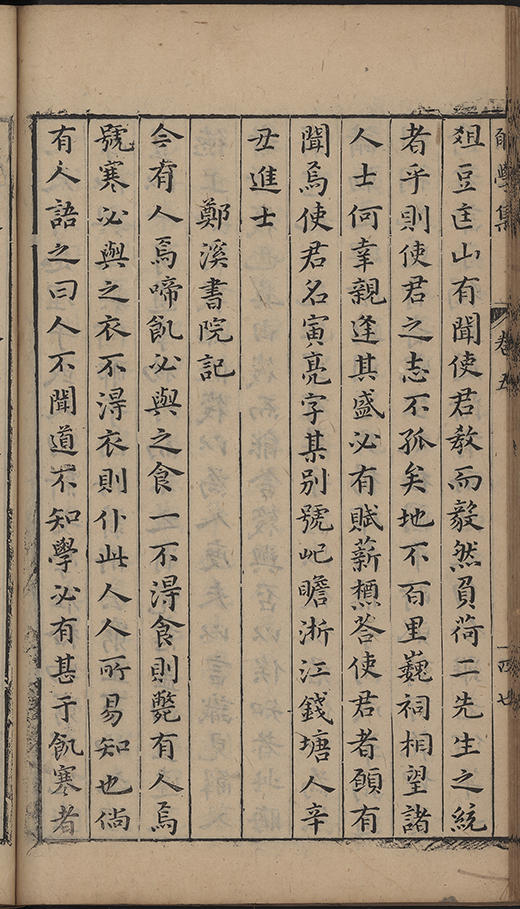 俎豆匡山有聞使君教而毅然負荷二先生之統
者乎則使君之志不孤矣地不百里巍祠相望諸
人士何幸親逢其盛必有賦薪槱答使君者願有
聞焉使君名寅亮字某别號屺瞻浙江錢塘人辛
丑進士
鄭溪書院記
今有人焉啼飢必與之食一不淂食則斃有人焉
號寒必與之衣不淂衣則仆此人人所易知也倘
有人語之曰人不聞道不知學必有甚于飢寒者
學集
卷五
一四七